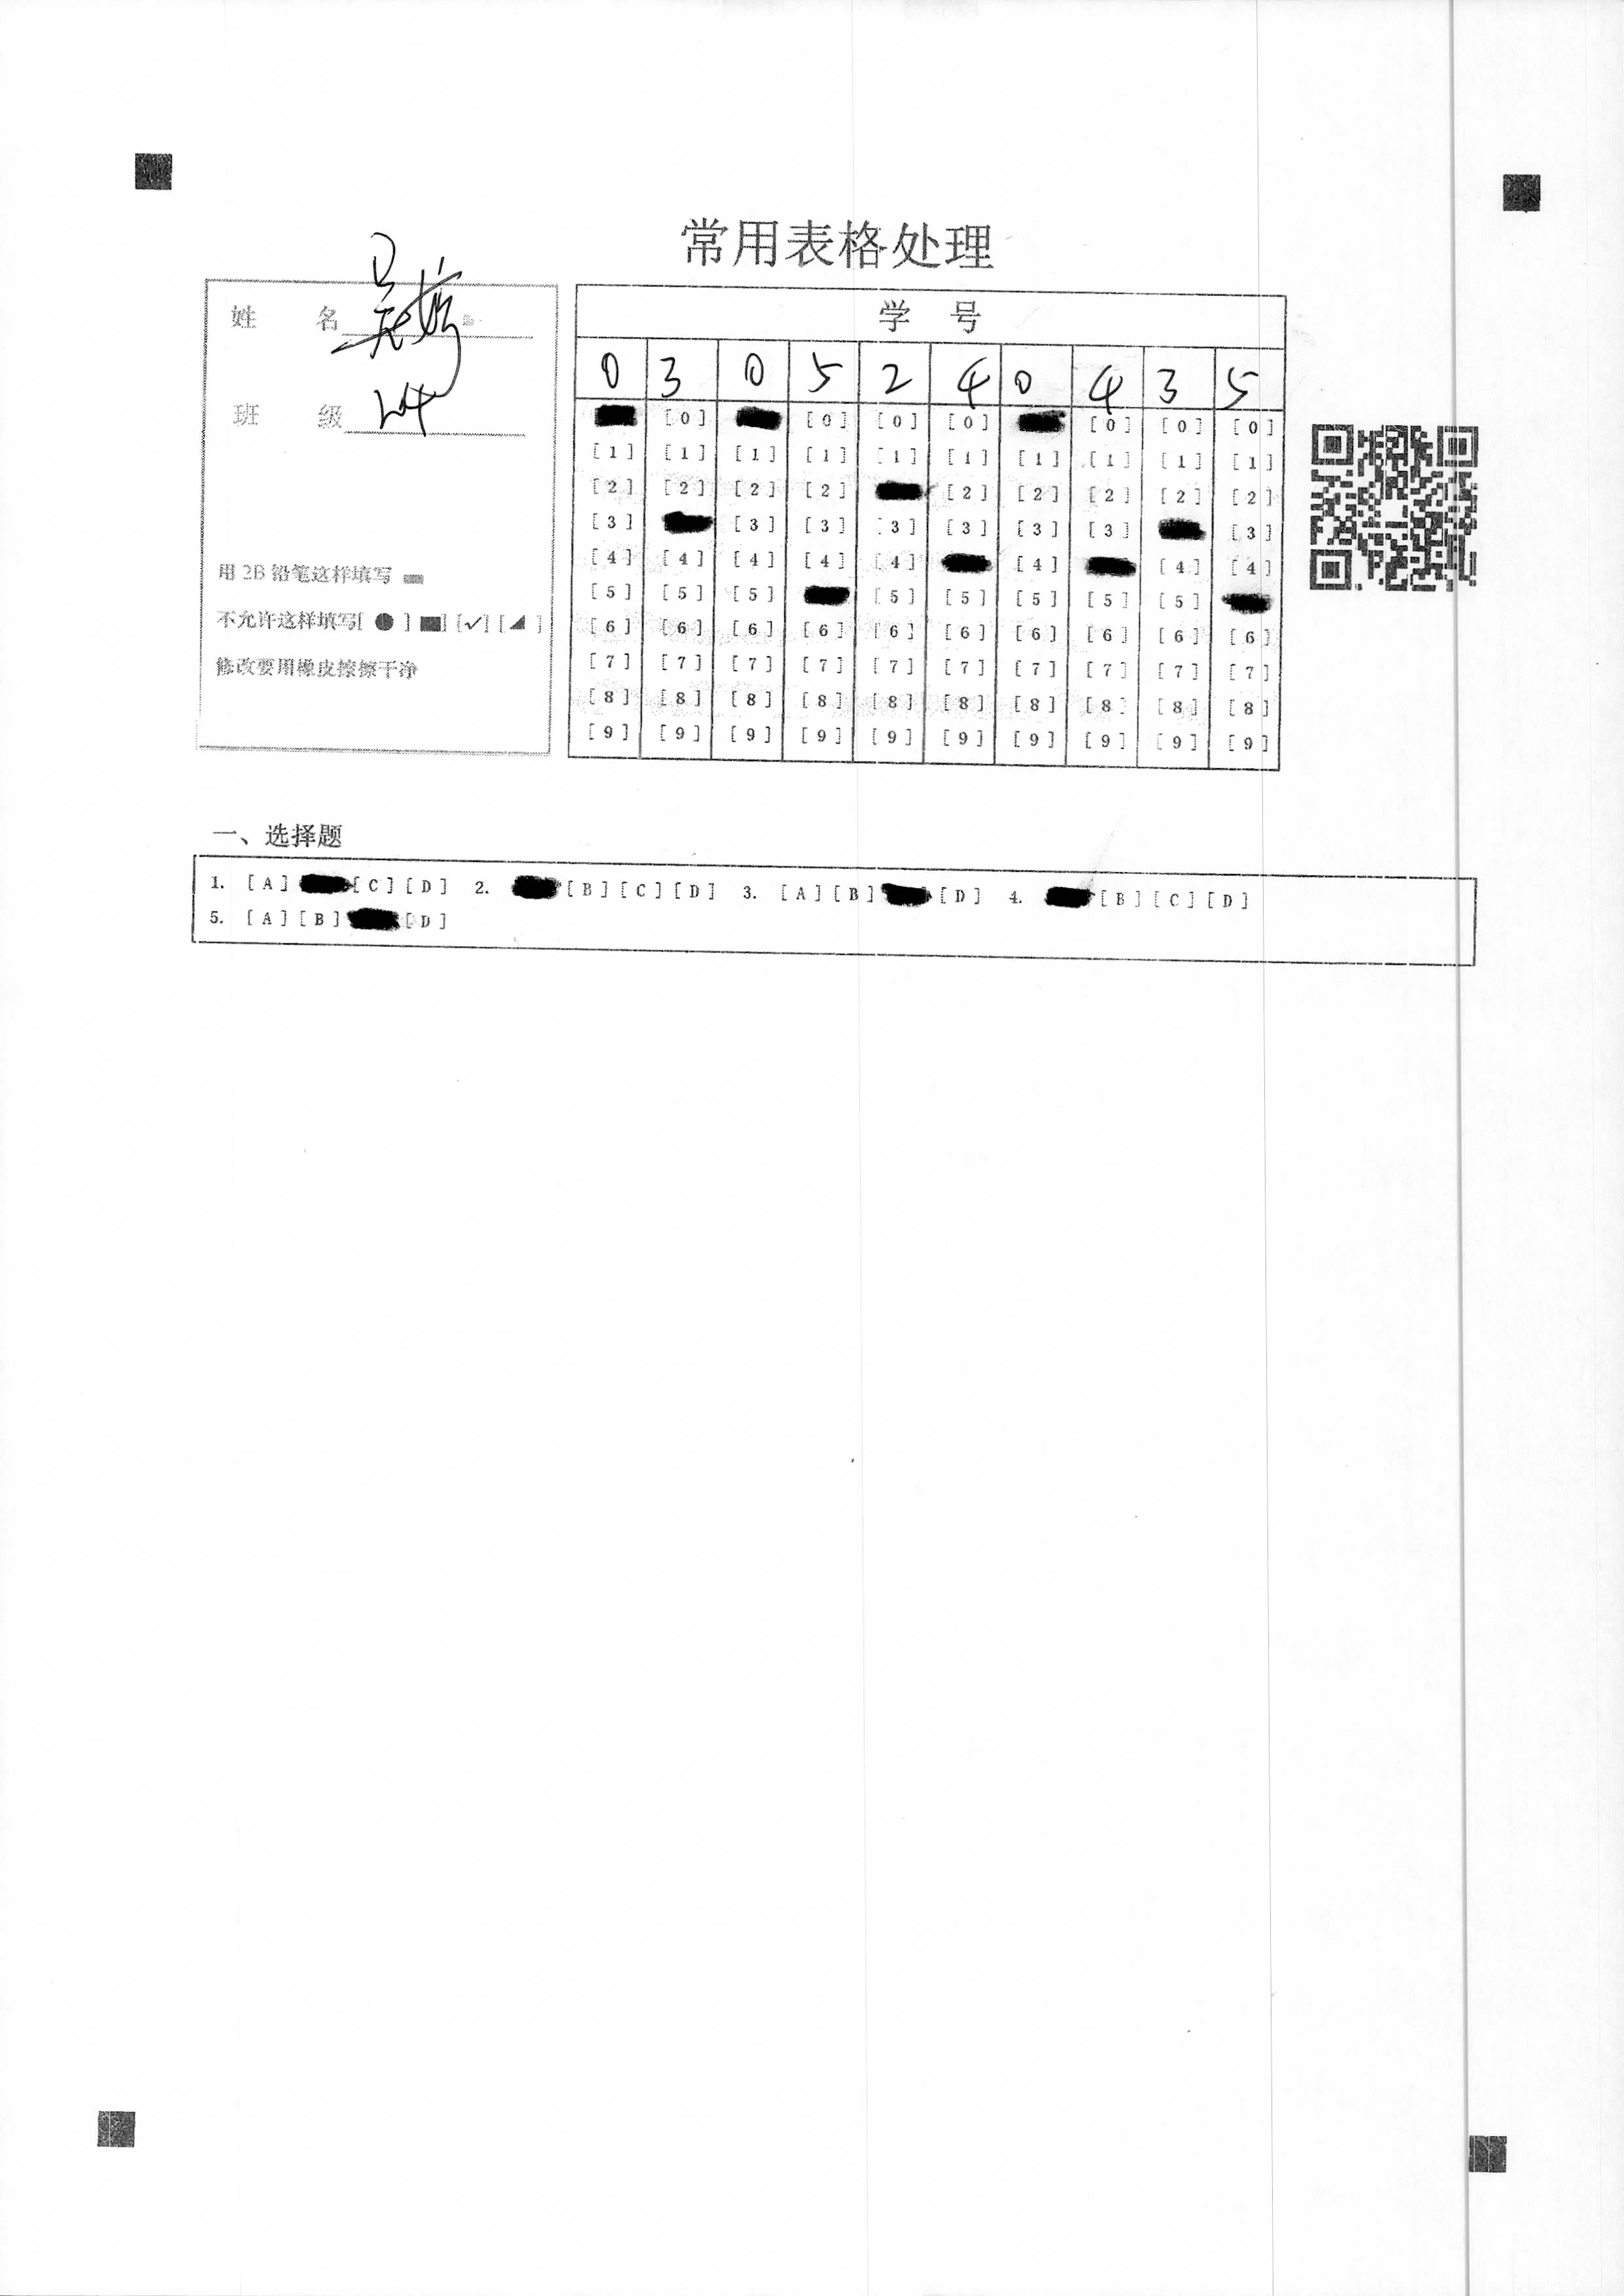 常用表格处理
姓 名 吴
班 级 24
用 2B 铅笔这样填写
不允许这样填写[ ● ] ■] [✓] [◢ ]
修改要用橡皮擦擦干净
学 号
0 3 0 5 2 4 0 4 3 5
[0] [0] [0] [0] [0] [0] [0]
[1] [1] [1] [1] [1] [1] [1] [1] [1] [1]
[2] [2] [2] [2] [2] [2] [2] [2] [2]
[3] [3] [3] [3] [3] [3] [3] [3]
[4] [4] [4] [4] [4] [4] [4] [4]
[5] [5] [5] [5] [5] [5] [5] [5]
[6] [6] [6] [6] [6] [6] [6] [6] [6] [6]
[7] [7] [7] [7] [7] [7] [7] [7] [7] [7]
[8] [8] [8] [8] [8] [8] [8] [8] [8] [8]
[9] [9] [9] [9] [9] [9] [9] [9] [9] [9]
一、选择题
1. [A] [C] [D] 2. [B] [C] [D] 3. [A] [B] [D] 4. [B] [C] [D]
5. [A] [B] [D]